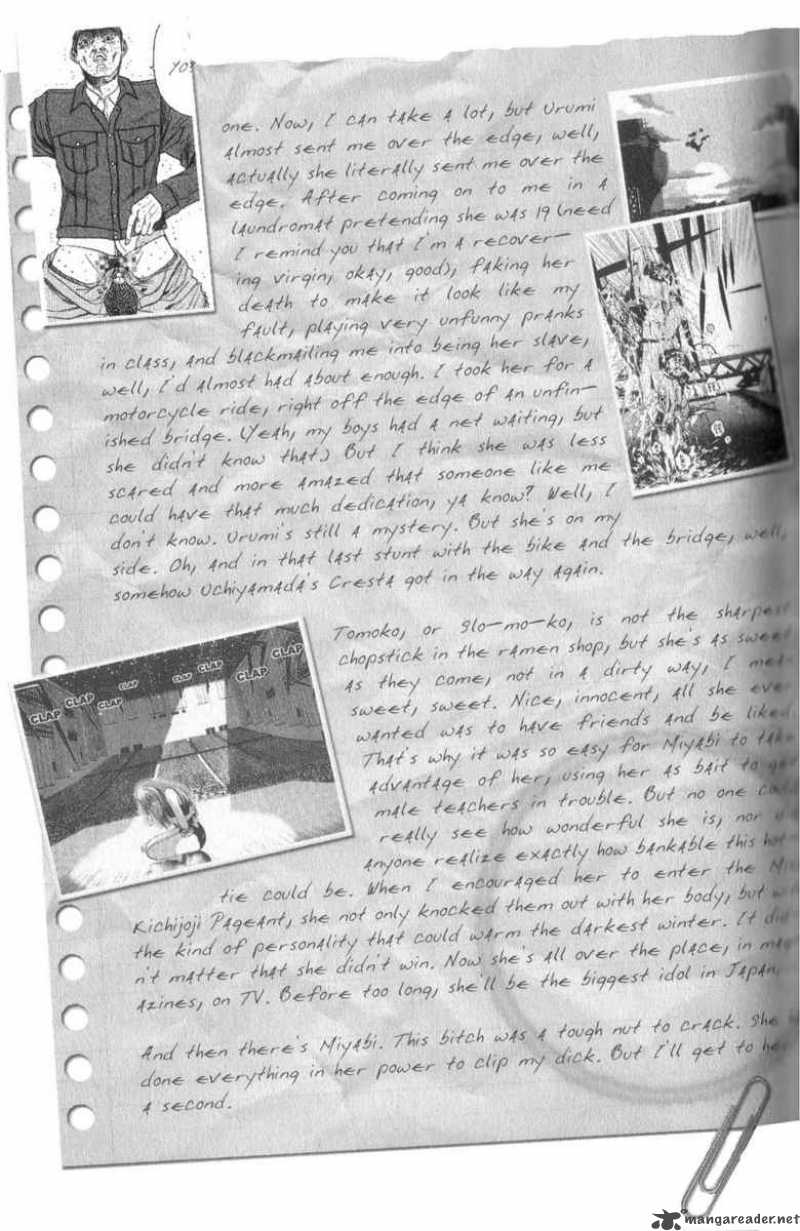 YO?
one. Now, I can take a lot, but Urumi
almost sent me over the edge, well,
actually she literally sent me over the
edge. After coming on to me in a
laundromat pretending she was 19 (need
I remind you that I'm a recover-
ing virgin, okay, good), faking her
death to make it look like my
fault, playing very unfunny pranks
in class, and blackmailing me into being her slave,
well, I'd almost had about enough. I took her for a
motorcycle ride, right off the edge of an unfin-
ished bridge. (Yeah, my boys had a net waiting, but
she didn't know that.) But I think she was less
scared and more amazed that someone like me
could have that much dedication, ya know? Well, I
don't know. Urumi's still a mystery. But she's on my
side. Oh, and in that last stunt with the bike and the bridge, well,
somehow Uchiyamada's Cresta got in the way again.
Tomoko, or slo-mo-ko, is not the sharpest
chopstick in the ramen shop, but she's as sweet
as they come, not in a dirty way, I
sweet, sweet. Nice, innocent, all she ever
wanted was to have friends and be liked.
That's why it was so easy for Miyabi to take
advantage of her, using her as bait to
male teachers in trouble. But no one
really see how wonderful she is, nor
anyone realize exactly how bankable this
tie could be. When I encouraged her to enter the
Kichijoji Pageant, she not only knocked them out with her body, but
the kind of personality that could warm the darkest winter. It
n't matter that she didn't win. Now she's all over the place, in
azines, on TV. Before too long, she'll be the biggest idol in Japan.
And then there's Miyabi. This bitch was a tough nut to crack. She
done everything in her power to clip my dick. But I'll get to
a second.
CLAP CLAP CLAP CLAP CLAP CLAP CLAP
mangareader.net